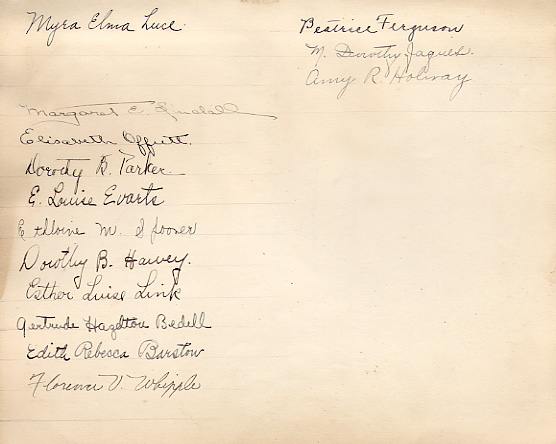 Myra Elma Luce.
Beatrice Ferguson
M. Dorothy Jaques.
Amy R. Holway
Margaret E.
Elisabeth Offutt.
Dorothy B. Parker.
E. Louise Evarts
M. Spooner
Dorothy B. Harvey.
Esther Luise Link
Gertrude Hazelton Bedell
Edith Rebecca Barstow
Florence V. Whipple